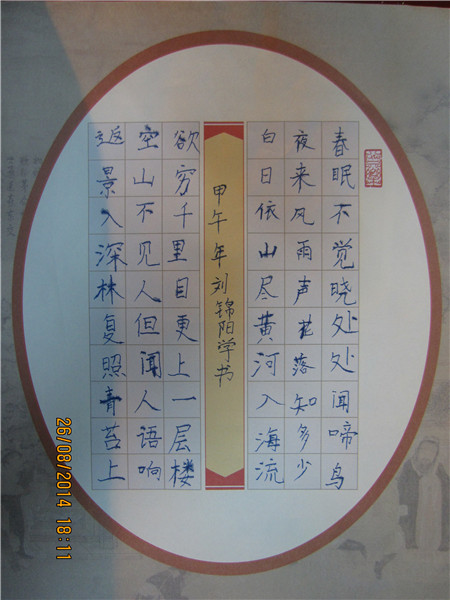 春眠不觉晓处处闻啼鸟
夜来风雨声花落知多少
白日依山尽黄河入海流
甲午年刘锦阳学书
欲穷千里目更上一层楼
空山不见人但闻人语响
返景入深林复照青苔上
26/08/2014 18:11